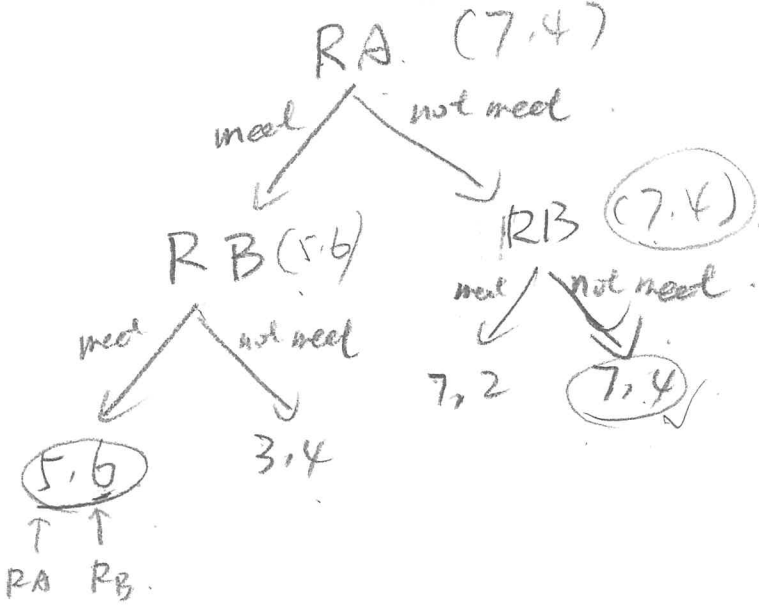 RA. (7,4)
meet not meet
RB (5,6) RB (7,4)
meet not meet
meet not meet
7,2 7,4
5,6 3,4
RA RB.